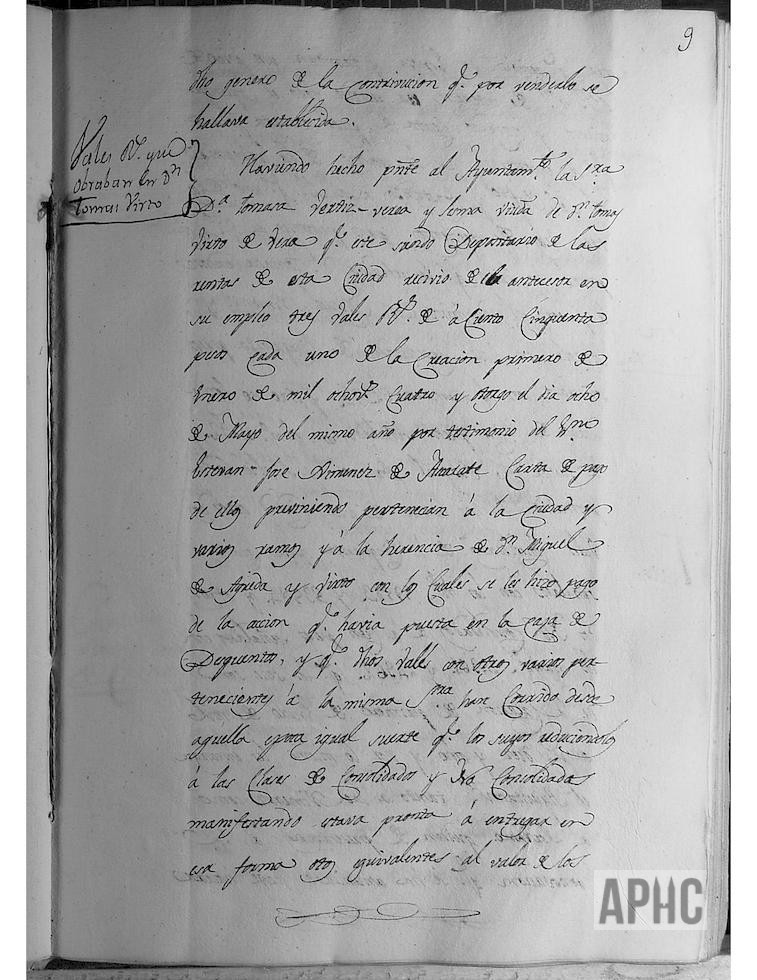 9
dho genero de la Contrivucion q.e por venderlo se
hallava establecida.
Vales R.s que
obraban en D.n
Tomas Virto
Haviendo hecho pnte al Ayuntam.to la S.ra
D.a tomasa Vertiz verea y Sema viuda de D.n tomas
Virto de Vera q.e este siendo Depositario de las
rentas de esta Ciudad recivio de su antecesor en
su empleo tres Vales R.s de à Ciento Cinquenta
pesos cada uno de la Creacion primero de
Enero de mil ochoz.s Cuatro y otorgo el dia ocho
de Mayo del mismo año por testimonio del Ess.no
Estevan Jose Ximenez de Carta de pago
de ellos previniendo pertenecian à la Ciudad y
varios ramos y à la herencia de D.n Miguel
de Agreda y Virto con los Cuales se les hizo pago
de la accion q.e havia puesta en la Caja de
Dequentos, y q.e dhos Vales con otros varios per-
tenecientes à la misma S.ra han Corrido desde
aquella epoca igual suerte q.e los suyos reduciendolos
à las Clases de Consolidados y No Consolidados
manifestando estava pronta à entregar en
esa forma otros equivalentes al valor de los
APHC